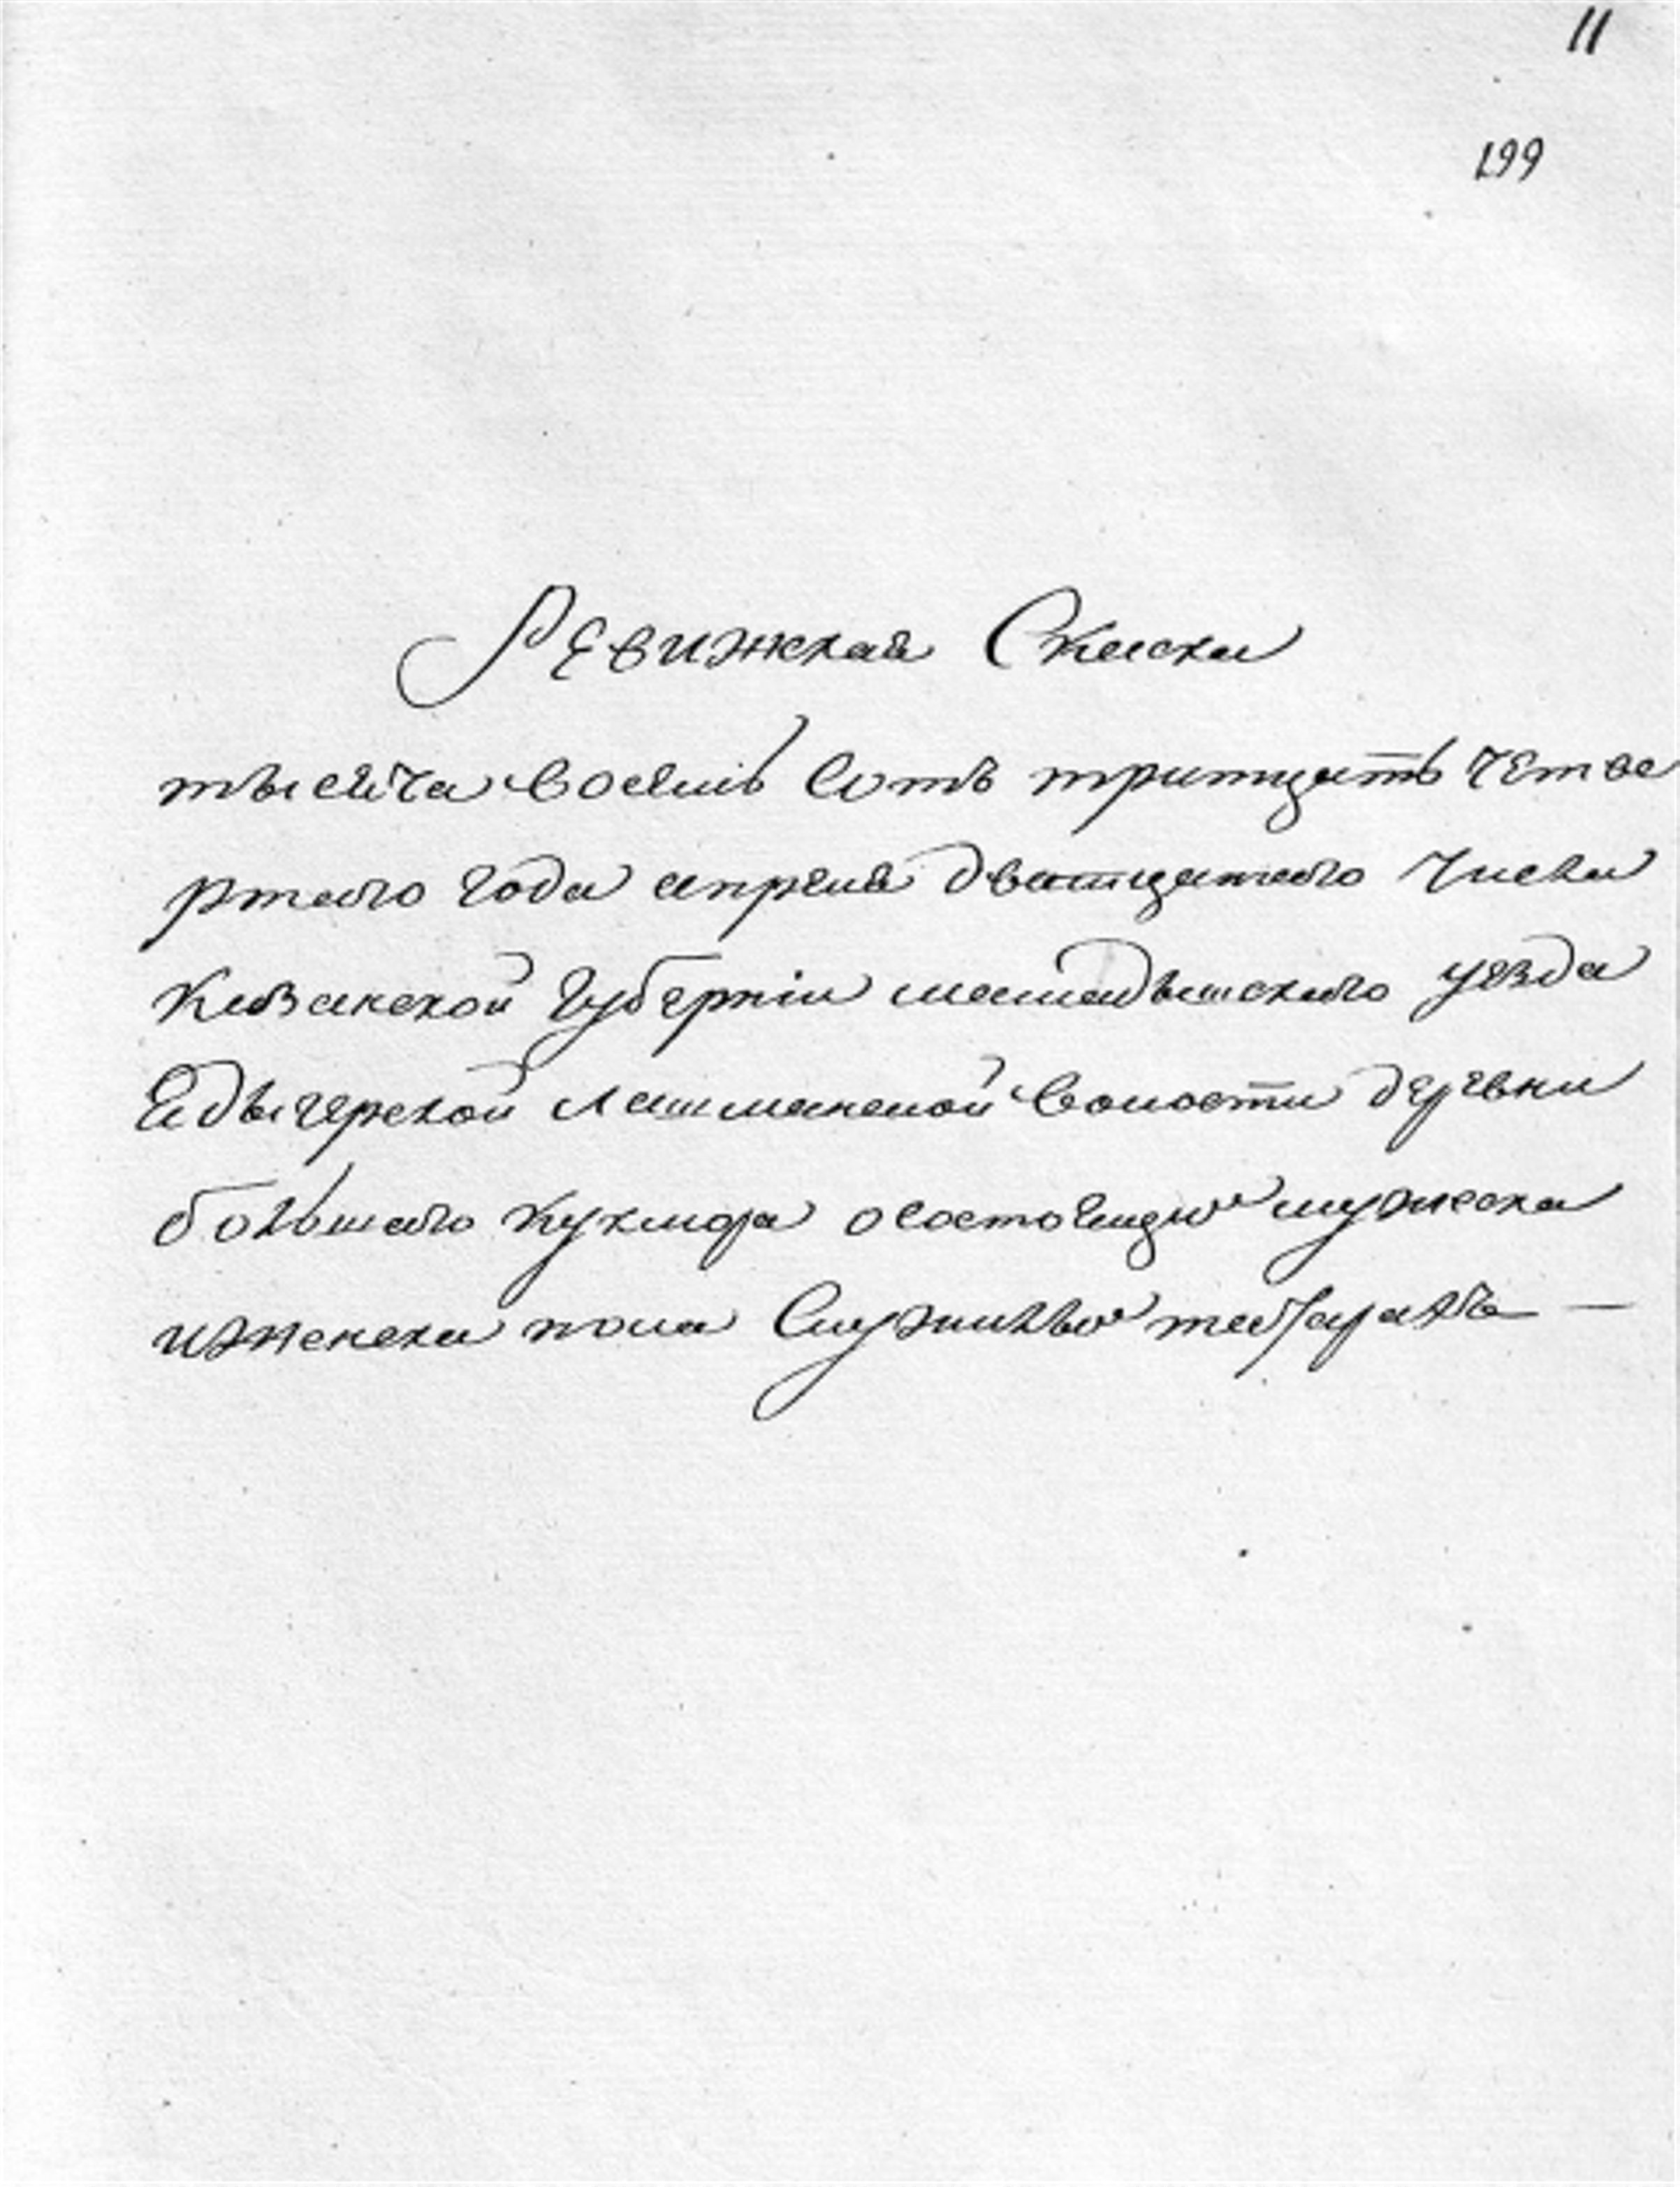 11
199
Ревижская Скаска
тысяча восемь сотъ тритцать четве
ртаго года апреля дватцатаго числа
Казанской губернiи мамадышского уезда
Едыгерской лашманской волости деревни
большаго кукмора осостоящихъ мужеска
иженска пола Служилыхъ татарахъ —